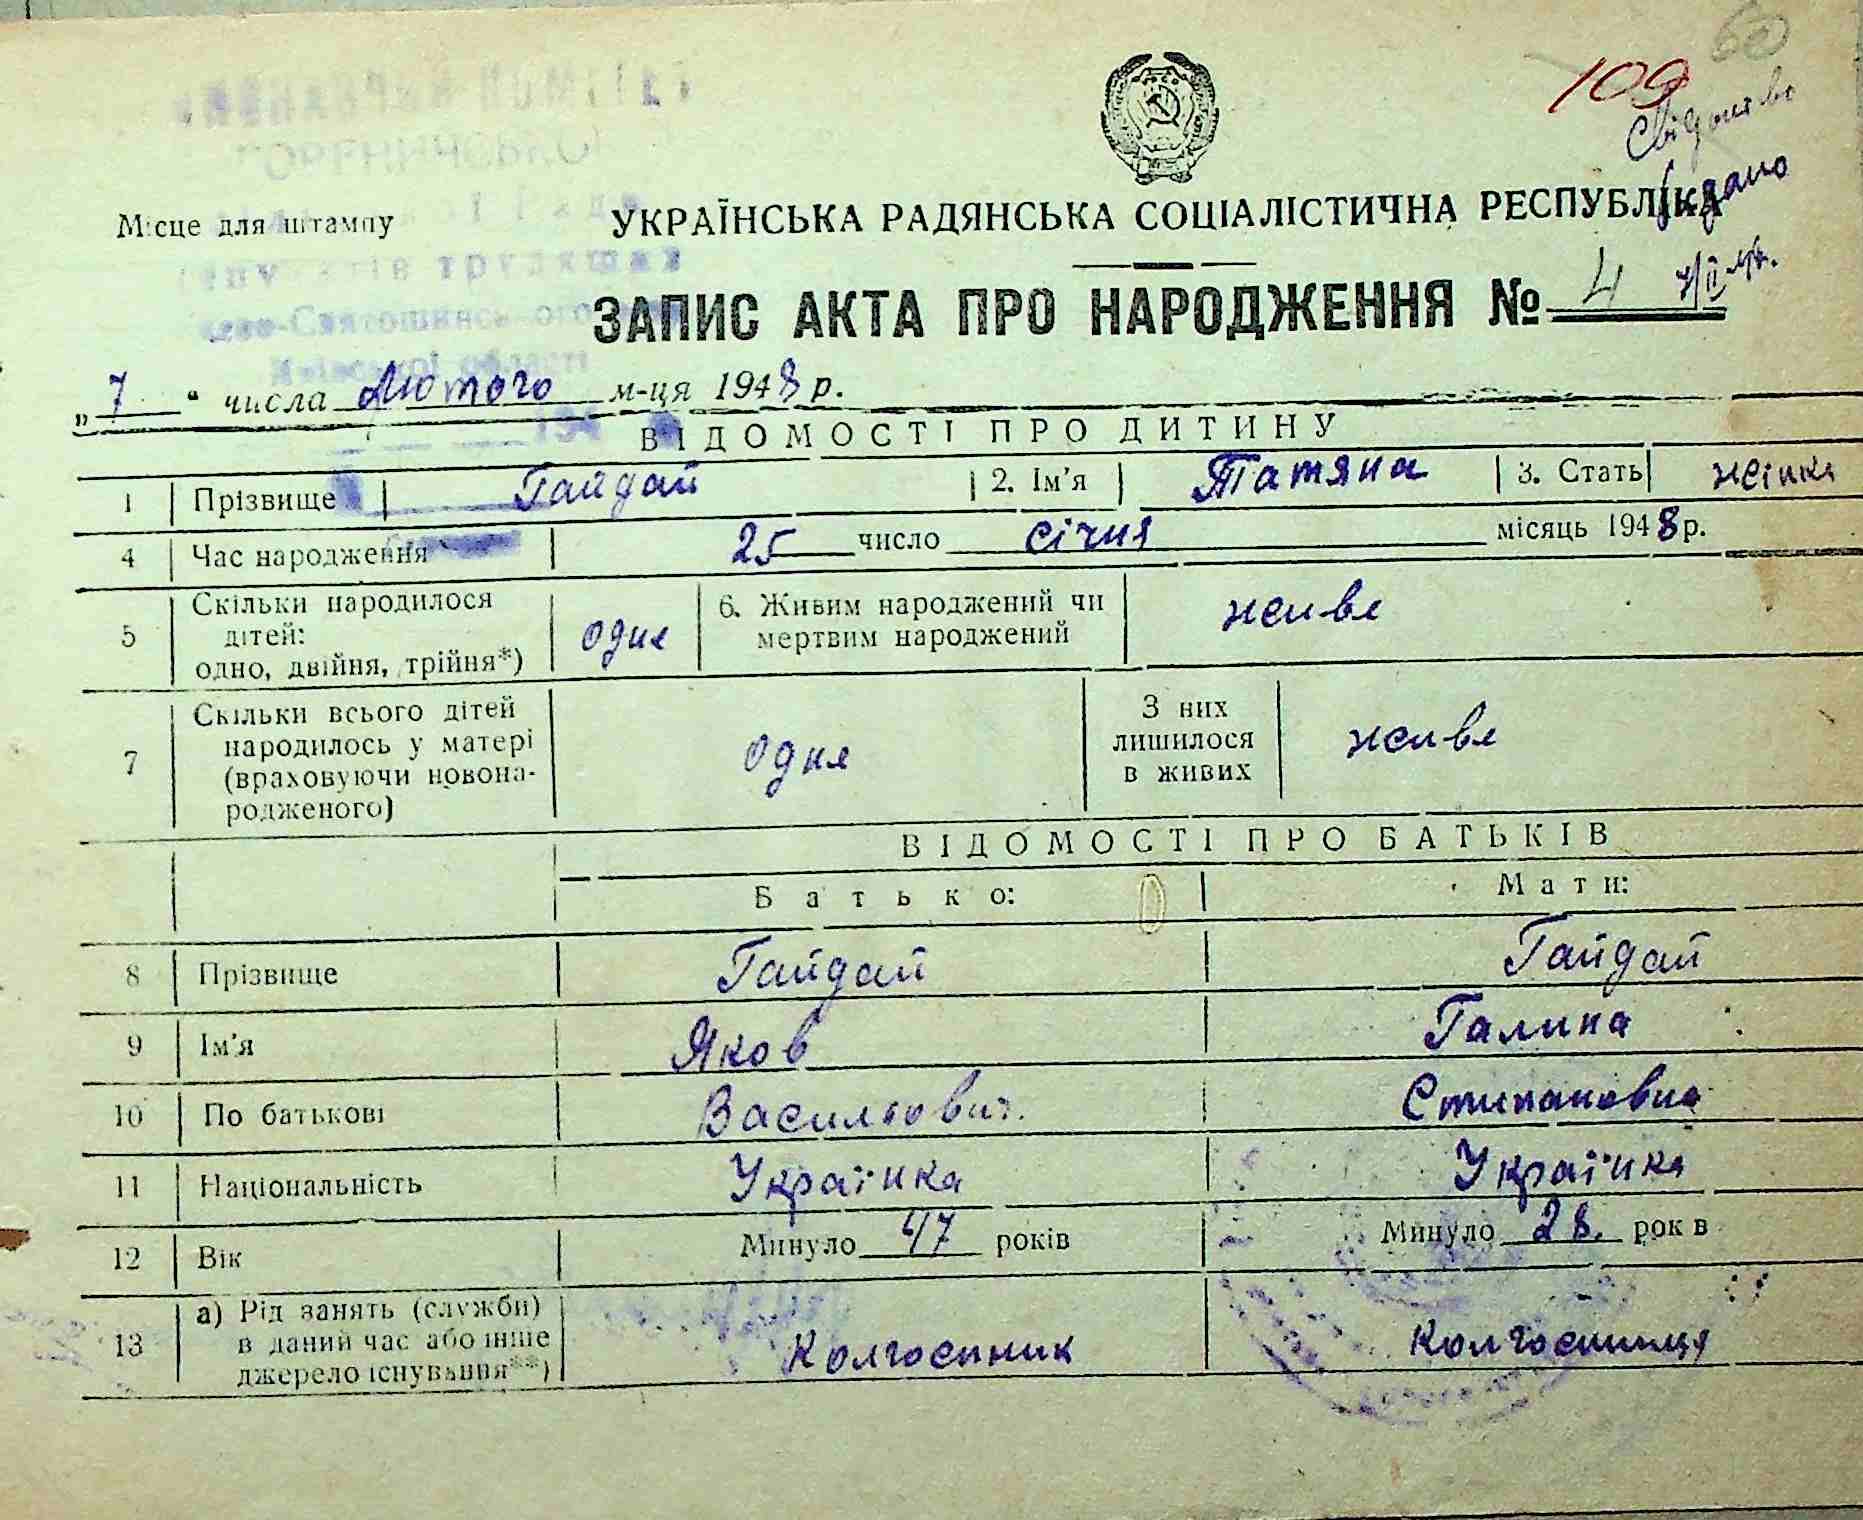 60
109
Свідоцтво
видано
7/II 48.
Місце для штампу
УКРАЇНСЬКА РАДЯНСЬКА СОЦІАЛІСТИЧНА РЕСПУБЛІКА
ЗАПИС АКТА ПРО НАРОДЖЕННЯ № 4
„ 7 " числа Лютого м-ця 1948 р.
ВІДОМОСТІ ПРО ДИТИНУ
1 Прізвище Гайдай 2. Ім'я Татяна 3. Стать жінка
4 Час народження 25 число січня місяць 1948 р.
5 Скільки народилося
дітей:
одно, двійня, трійня*) одне 6. Живим народжений чи
мертвим народжений живе
7 Скільки всього дітей
народилось у матері
(враховуючи новона-
родженого) одне З них
лишилося
в живих живе
ВІДОМОСТІ ПРО БАТЬКІВ
Батько: Мати:
8 Прізвище Гайдай Гайдай
9 Ім'я Яков Галина
10 По батькові Васильович. Стипановна
11 Національність Українка Українка
12 Вік Минуло 47 років Минуло 28. рок в
13 а) Рід занять (служби)
в даний час або інше
джерело існування**) Колгоспник Колгоспниця